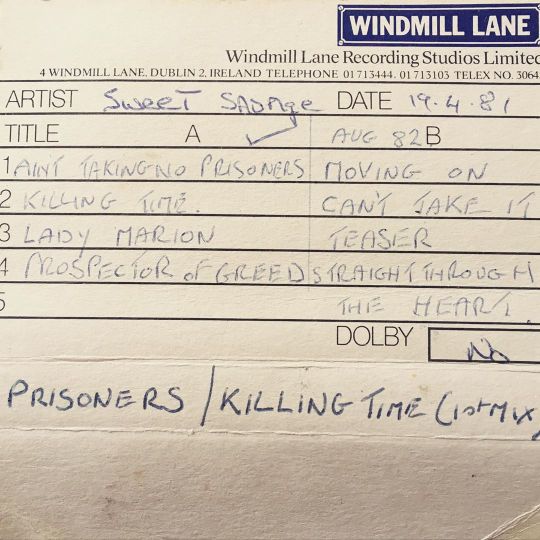 WINDMILL LANE
Windmill Lane Recording Studios Limited
4 WINDMILL LANE, DUBLIN 2, IRELAND TELEPHONE 01 713444. 01 713103 TELEX NO. 3064
ARTIST SWEET SAVAGE DATE 19.4.81
TITLE A ✓ AUG 82 B
1 AINT TAKING NO PRISONERS MOVING ON
2 KILLING TIME. CAN'T TAKE IT
3 LADY MARION TEASER
4 PROSPECTOR OF GREED STRAIGHT THROUGH
5 THE HEART.
DOLBY No
PRISONERS / KILLING TIME (1st MIX)